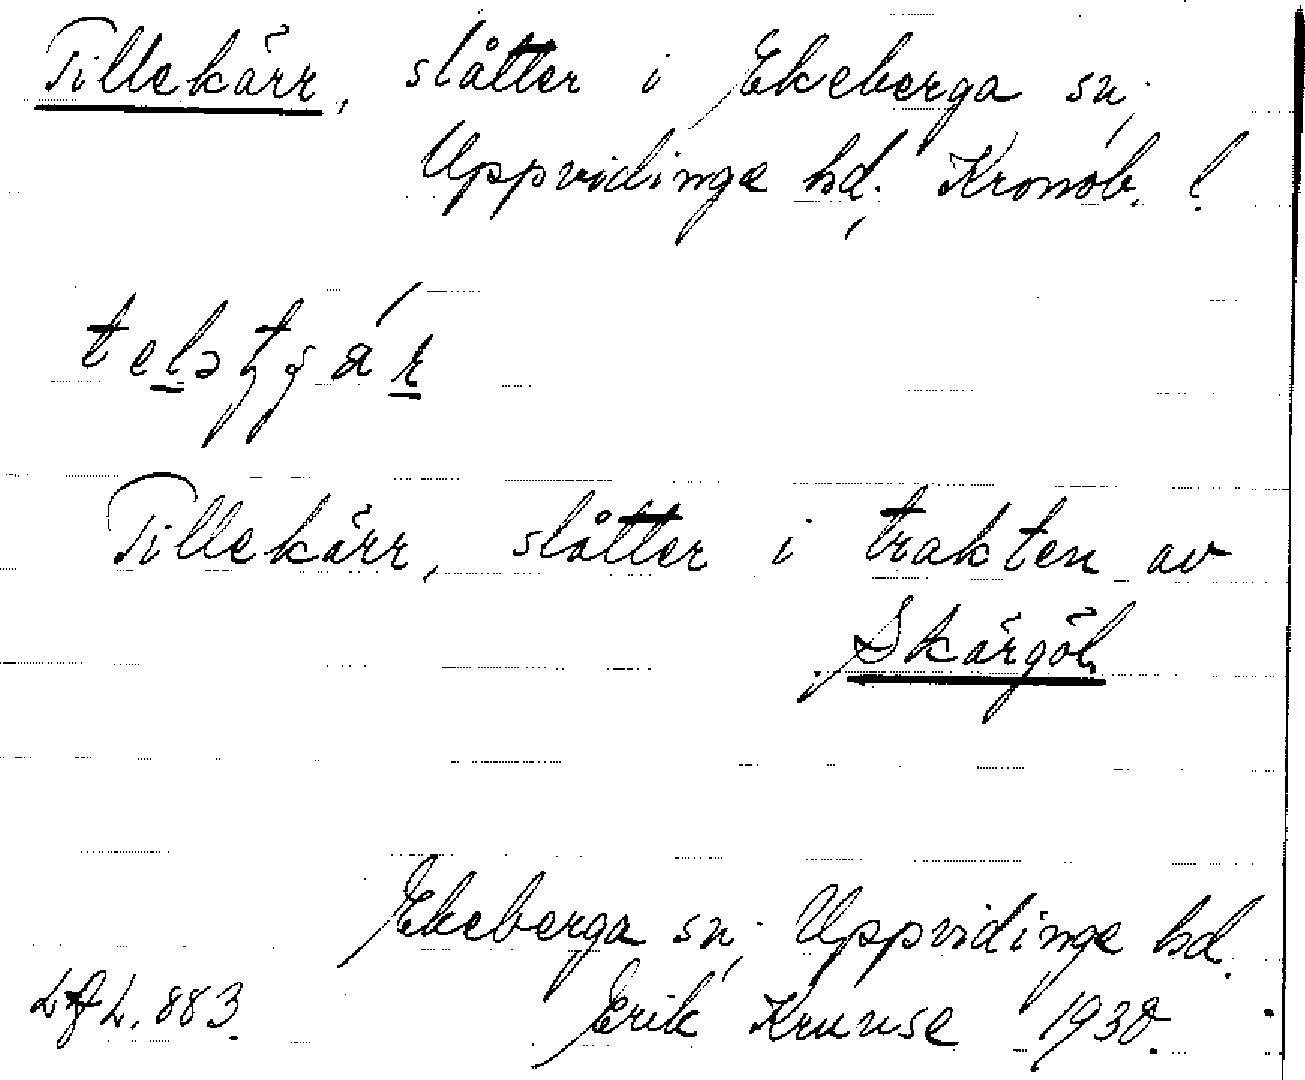 Tillekärr, slåtter i Ekeberga sn;
Uppvidinge hd; Kronob. l.
Tillekärr, slåtter i trakten av
Skärgöl.
Ekeberga sn; Uppvidinge hd.
LfL. 883. Erik Kruuse 1930.